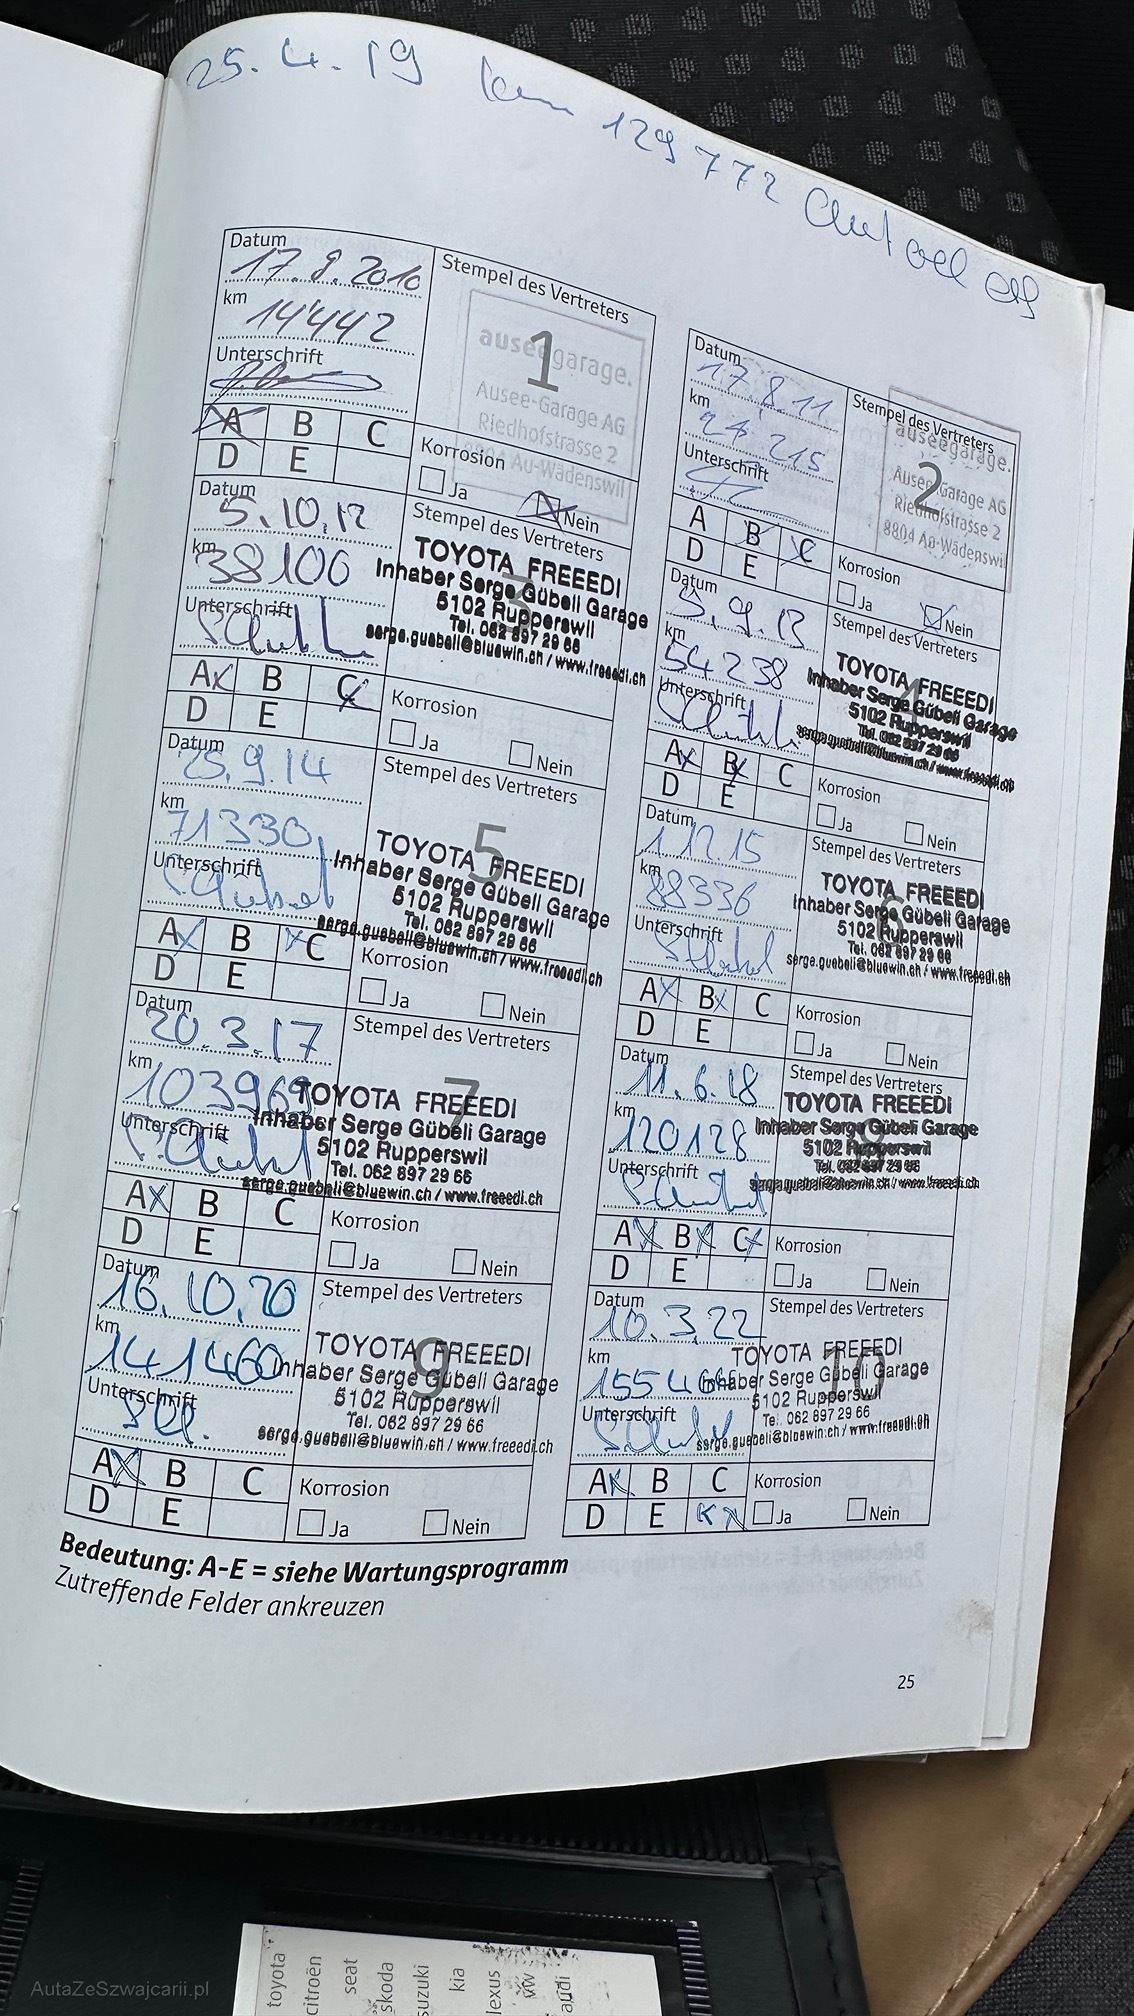 25. 4. 19 km 129 772
Datum
17. 9. 2010
km
14'442
Unterschrift
Stempel des Vertreters
1
auseegarage.
Ausee-Garage AG
Riedhofstrasse 2
8804 Au-Wädenswil
A B C
D E
Korrosion
Ja Nein
Datum
17. 8. 11
km
215
Unterschrift
Stempel des Vertreters
2
auseegarage.
Ausee-Garage AG
Riedhofstrasse 2
8804 Au-Wädenswil
A B C
D E
Korrosion
Ja Nein
Datum
5. 10. 12
km
38100
Unterschrift
Stempel des Vertreters
3
TOYOTA FREEEDI
Inhaber Serge Gübeli Garage
5102 Rupperswil
Tel. 062 897 29 66
serge.guebeli@bluewin.ch / www.freeedi.ch
A B C
D E
Korrosion
Ja Nein
Datum
3. 9. 13
km
54238
Unterschrift
Stempel des Vertreters
4
TOYOTA FREEEDI
Inhaber Serge Gübeli Garage
5102 Rupperswil
Tel. 062 897 29 66
serge.guebeli@bluewin.ch / www.freeedi.ch
A B C
D E
Korrosion
Ja Nein
Datum
25. 9. 14
km
71330
Unterschrift
Stempel des Vertreters
5
TOYOTA FREEEDI
Inhaber Serge Gübeli Garage
5102 Rupperswil
Tel. 062 897 29 66
serge.guebeli@bluewin.ch / www.freeedi.ch
A B C
D E
Korrosion
Ja Nein
Datum
1. 12. 15
km
88336
Unterschrift
Stempel des Vertreters
6
TOYOTA FREEEDI
Inhaber Serge Gübeli Garage
5102 Rupperswil
Tel. 062 897 29 66
serge.guebeli@bluewin.ch / www.freeedi.ch
A B C
D E
Korrosion
Ja Nein
Datum
20. 3. 17
km
103969
Unterschrift
Stempel des Vertreters
7
TOYOTA FREEEDI
Inhaber Serge Gübeli Garage
5102 Rupperswil
Tel. 062 897 29 66
serge.guebeli@bluewin.ch / www.freeedi.ch
A B C
D E
Korrosion
Ja Nein
Datum
11. 6. 18
km
120128
Unterschrift
Stempel des Vertreters
8
TOYOTA FREEEDI
Inhaber Serge Gübeli Garage
5102 Rupperswil
Tel. 062 897 29 66
serge.guebeli@bluewin.ch / www.freeedi.ch
A B C
D E
Korrosion
Ja Nein
Datum
16. 10. 20
km
141460
Unterschrift
Stempel des Vertreters
9
TOYOTA FREEEDI
Inhaber Serge Gübeli Garage
5102 Rupperswil
Tel. 062 897 29 66
serge.guebeli@bluewin.ch / www.freeedi.ch
A B C
D E
Korrosion
Ja Nein
Datum
10. 3. 22
km
Unterschrift
Stempel des Vertreters
10
TOYOTA FREEEDI
Inhaber Serge Gübeli Garage
5102 Rupperswil
Tel. 062 897 29 66
serge.guebeli@bluewin.ch / www.freeedi.ch
A B C
D E
Korrosion
Ja Nein
Bedeutung: A-E = siehe Wartungsprogramm
Zutreffende Felder ankreuzen
25
toyota
citroën
seat
škoda
suzuki
kia
lexus
vw
audi
AutaZeSzwajcarii.pl